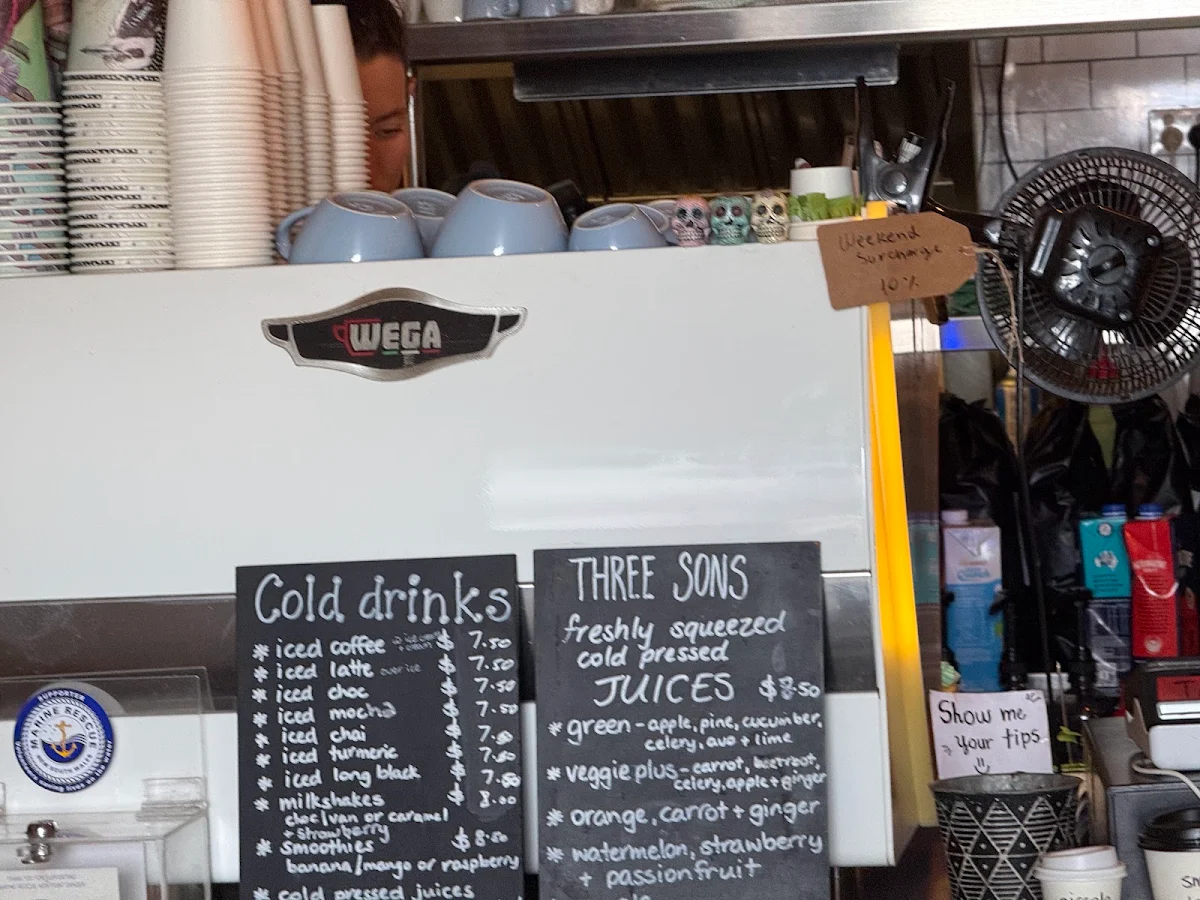 Weekend
Surcharge
10%
WEGA
SUPPORTER
MARINE RESCUE
NEW SOUTH WALES
Cold drinks
* iced coffee $ 7.50
* iced latte over ice $ 7.50
* iced choc $ 7.50
* iced mocha $ 7.50
* iced chai $ 7.50
* iced turmeric $ 7.50
* iced long black $ 7.50
* milkshakes $ 8.00
choc/van or caramel
+ strawberry
* smoothies $8.50
banana/mango or raspberry
* cold pressed juices
THREE SONS
freshly squeezed
cold pressed
JUICES $8.50
* green - apple, pine, cucumber,
celery, avo + lime
* veggie plus - carrot, beetroot,
celery, apple + ginger
* orange, carrot + ginger
* watermelon, strawberry
+ passionfruit
Show me
your tips
piccolo